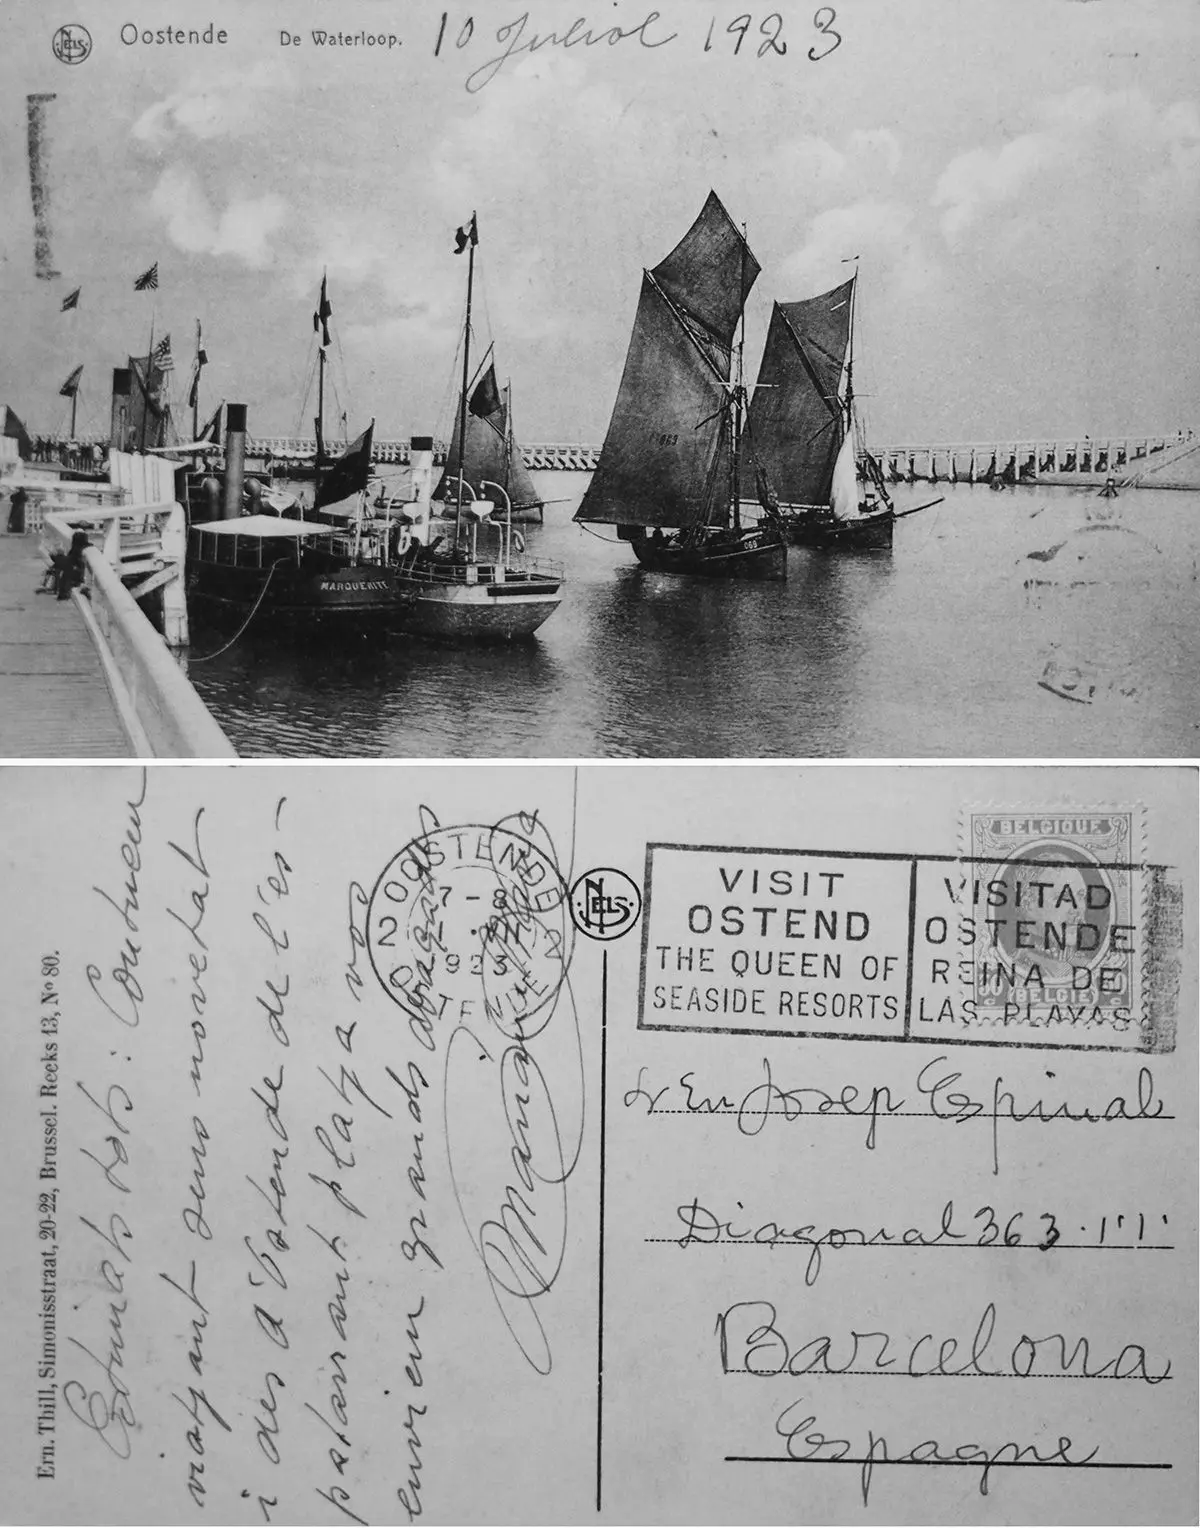 NELS
Oostende De Waterloop. 10 Juliol 1923
069
069
MARQUERITE
Ern. Thill, Simonisstraat, 20-22, Brussel. Reeks 13, Nº 80.
Estimats tots: Continuem
viatjant sens novetat
i des d'Ostende de l'es-
patarrant platja vos
enviem grands abraçades
Maria
OOSTENDE
2 2
7-8
923
NELS
VISIT
OSTEND
THE QUEEN OF
SEASIDE RESORTS
VISITAD
OSTENDE
REINA DE
LAS PLAYAS
BELGIQUE
BELGIE
Sr En Josep Espinal
Diagonal 363.1º1ª
Barcelona
Espagne